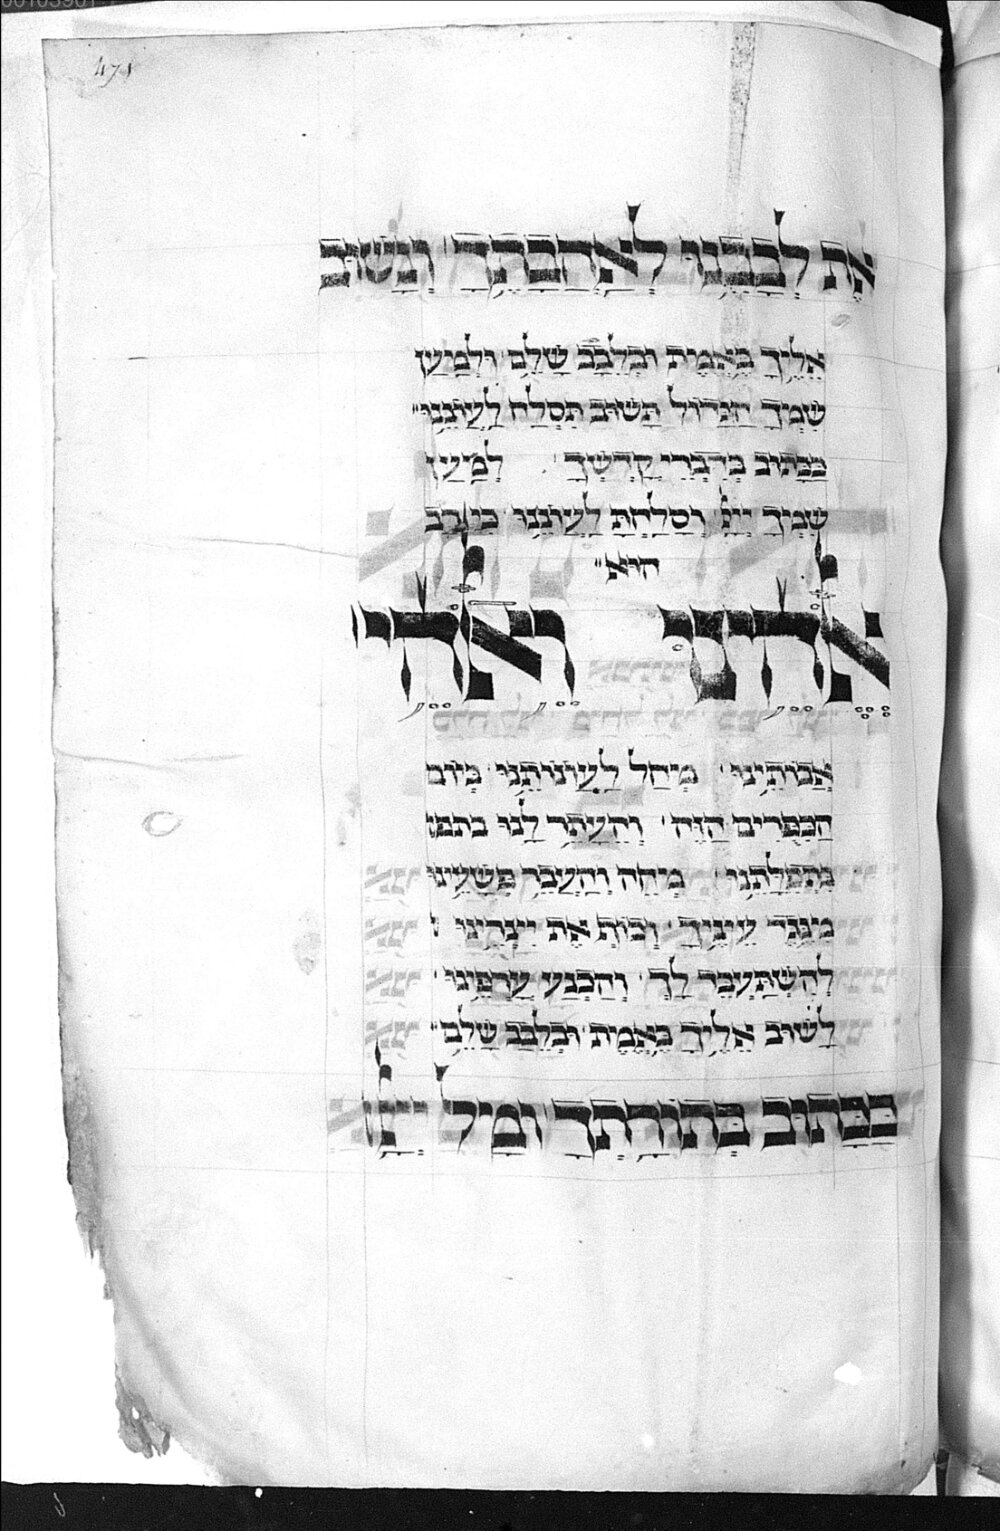 471
אֶת לְבָבֵנוּ לְאַהֲבָתֶךָ וְנָשׁוּב
אֵלֶיךָ בֶּאֱמֶת וּבְלֵבָב שָׁלֵם וּלְמַעַן
שִׁמְךָ הַגָּדוֹל תָּשׁוּב תִּסְלַח לַעֲוֹנֵנוּ
כַּכָּתוּב בְּדִבְרֵי קָדְשֶׁךָ לְמַעַן
שִׁמְךָ יְיָ וְסָלַחְתָּ לַעֲוֹנֵנוּ כִּי רַב
הוּא
אֱלֹהֵינוּ וֵאלֹהֵי
אֲבוֹתֵינוּ מְחַל לַעֲוֹנוֹתֵינוּ בְּיוֹם
הַכִּפֻּרִים הַזֶּה וְהֵעָתֵר לָנוּ
בִּתְפִלָּתֵנוּ מְחֵה וְהַעֲבֵר פְּשָׁעֵינוּ
מִנֶּגֶד עֵינֶיךָ וְכוֹף אֶת יִצְרֵינוּ
לְהִשְׁתַּעְבֵּד לָךְ וְהַכְנַע עָרְפֵּינוּ
לָשׁוּב אֵלֶיךָ בֶּאֱמֶת וּבְלֵבָב שָׁלֵם
כַּכָּתוּב בְּתוֹרָתֶךָ וּמָל יְיָ